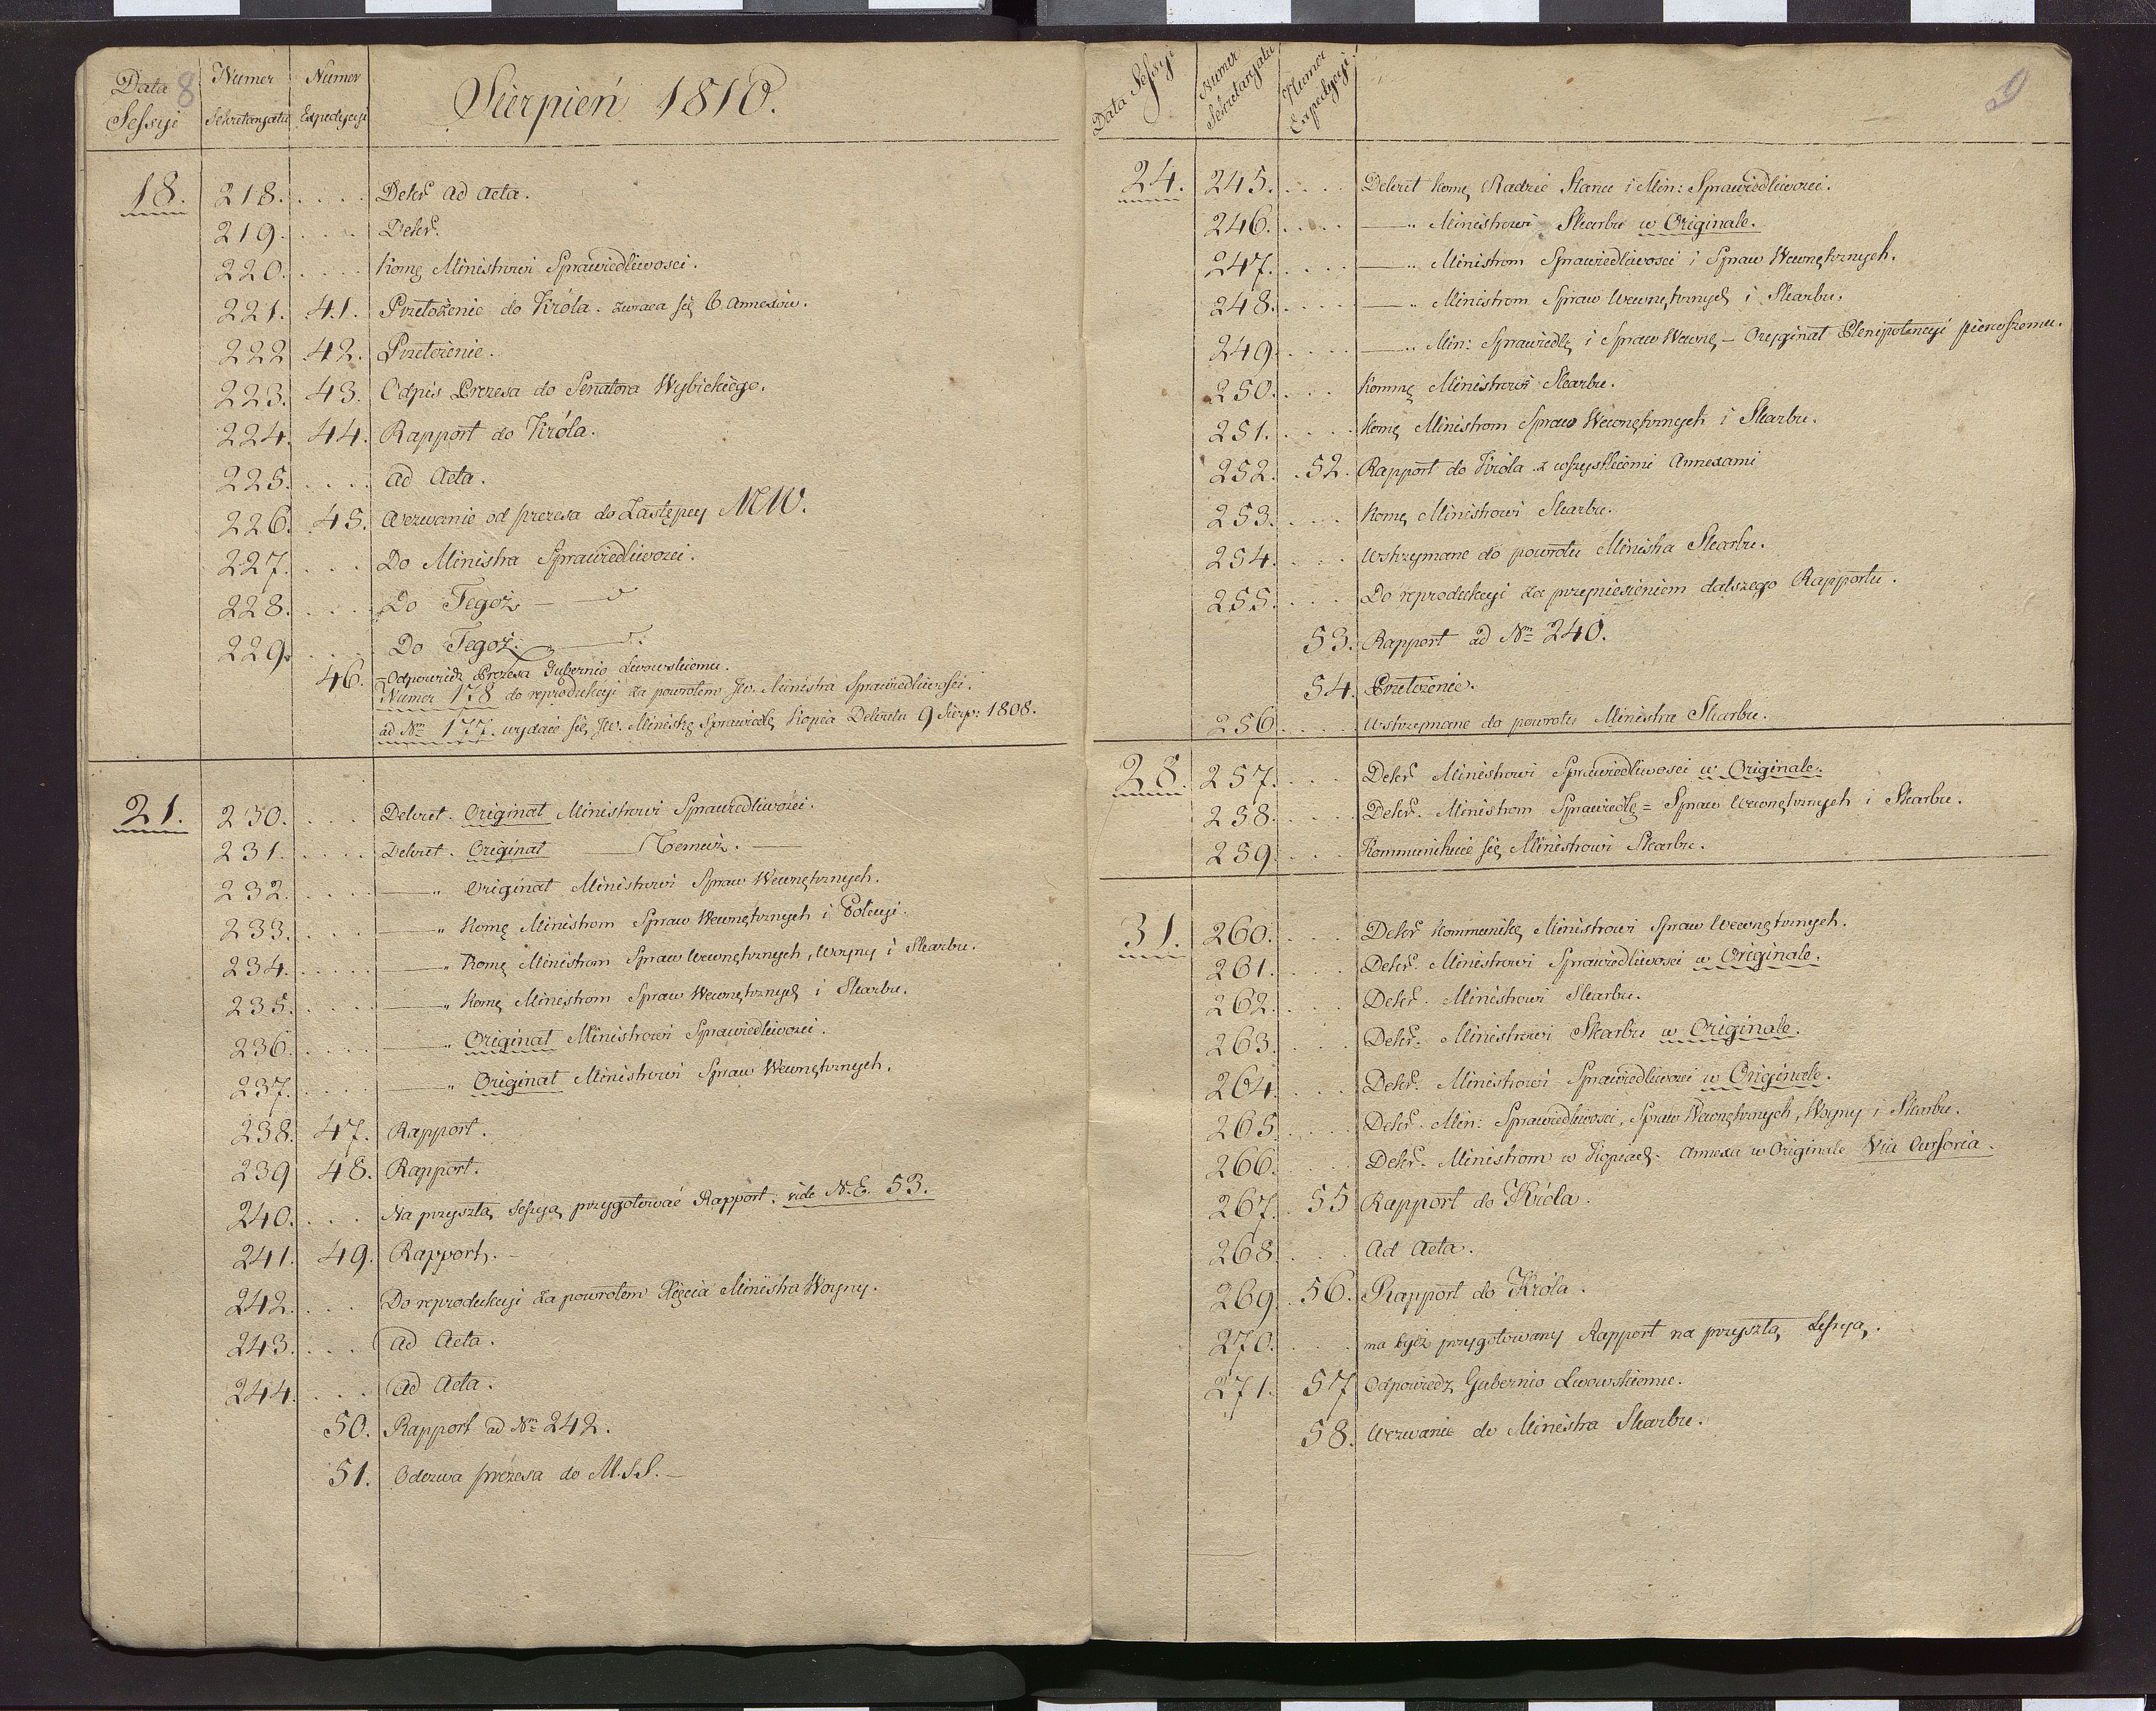 8
Data Numer Numer
Sessyi Sekretaryatu Expedycyi
Sierpień 1810.
18. 218. . . . . Dekr. ad Acta.
219. . . . Dekr.
220. . . . Komę Ministrowi Sprawiedliwosci.
221. 41. Przełożenie do Króla. zwraca się 6. Annexów.
222 42. Przełożenie.
223. 43. Odpis Prezesa do Senatora Wybickiego.
224. 44. Rapport do Króla.
225. . . . . ad Acta.
226. 45. Wezwanie od prezesa do Zastępcy MW.
227. . . . Do Ministra Sprawiedliwosci.
228. . . . Do Tegoż —
229. . . . Do Tegoż. —
46. — Odpowiedź Prezesa Gubernio Lwowskiemu.
Numer 178 do reprodukcyi za powrotem JW. Ministra Sprawiedliwości.
ad Nm 177. wydaie się JW. Ministrę Sprawiedlę Kopia Dekretu 9 Sierp: 1808.
21. 230. . . . Dekret. Originał Ministrowi Sprawiedliwosci.
231. . . . . Dekret. Originał — Temuż. —
232. . . . —„ Originał Ministrowi Spraw Wewnętrznych.
233. . . . —„ Komę Ministrom Spraw Wewnętrznych i Policyi.
234. . . . . —„ Komę Ministrom Spraw Wewnętrznych, Woyny i Skarbu.
235. . . . —„ Komę Ministrom Spraw Wewnętrznych i Skarbu.
236. . . . . —„ Originał Ministrowi Sprawiedliwosci.
237. . . . —„ Originał Ministrowi Spraw Wewnętrznych.
238. 47. Rapport.
239 48. Rapport.
240. . . . Na przyszłą Sessyą przygotować Rapport. vide N. E. 53.
241. 49. Rapport. —
242. . . . Do reprodukcyi za powrotem Xięcia Ministra Woyny.
243. . . . ad Acta.
244. . . . ad Acta.
50. Rapport ad Nm 242.
51. Odezwa prezesa do M.S.S. —
9
Data Sessyi Numer Sekretaryatu Numer Expedycyi
24. 245. . . . . Dekret Komę Radzie Stanu i Min: Sprawiedliwosci.
246. . . . . —„ Ministrowi Skarbu w Originale.
247. . . . . —„ Ministrom Sprawiedliwosci i Spraw Wewnętrznych.
248. . . . . —„ Ministrom Spraw Wewnętrznych i Skarbu.
249. . . . . —„ Min: Sprawiedlę i Spraw Wewnę — Oryginał Plenipotencyi pierwszemu.
250. . . . Kommę Ministrowi Skarbu.
251. . . . . Komę Ministrom Spraw Wewnętrznych i Skarbu.
252. . 52. Rapport do Króla z wszystkiemi Annexami
253. . . . Komę Ministrowi Skarbu.
254. . . . Wstrzymane do powrotu Ministra Skarbu.
255. . . . Do reprodukcyi za przyniesieniem dalszego Rapportu.
53. Rapport ad Nm 240.
54. Przełożenie.
256. . . . Wstrzymane do powrotu Ministra Skarbu.
28. 257. . . . Dekr. Ministrowi Sprawiedliwosci w Originale.
258. . . . . Dekr. Ministrom Sprawiedlę = Spraw Wewnętrznych i Skarbu.
259. . . . Kommunikuie się Ministrowi Skarbu.
31. 260. . . . Dekr Kommunikę Ministrowi Spraw Wewnętrznych.
261. . . . Dekr. Ministrowi Sprawiedliwosci w Originale.
262. . . . Dekr. Ministrowi Skarbu.
263. . . . Dekr. Ministrowi Skarbu w Originale.
264. . . . Dekr. Ministrowi Sprawiedliwosci w Originale.
265. . . . . Dekr. Min: Sprawiedliwosci, Spraw Wewnętrznych, Woyny i Skarbu.
266. . . . Dekr. Ministrom w Kopiach. Annexa w Originale Via Cursoria.
267. . 55 Rapport do Króla.
268. . . . Ad Acta.
269. . 56. Rapport do Króla.
270. . . . ma być przygotowany Rapport na przyszłą Sessyą.
271. 57 Odpowiedź Gubernio Lwowskiemu.
58. Wezwanie do Ministra Skarbu.